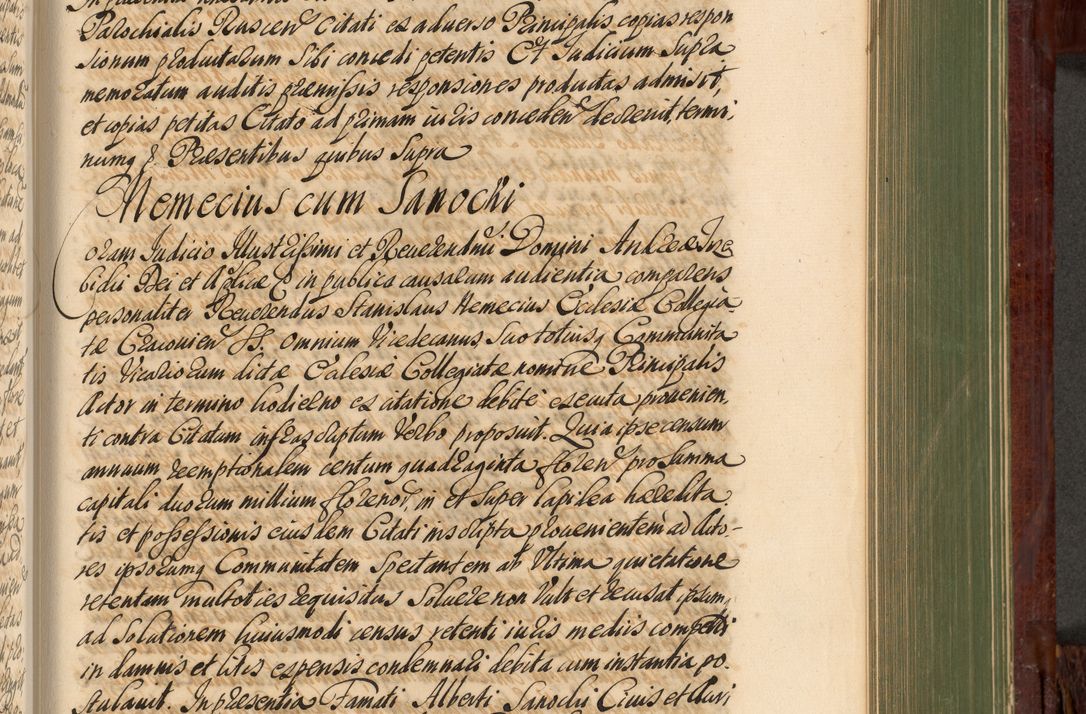 Parochialis Ruscen Citati ex adverso Principalis copias respon
sionum productarum sibi concedi petentis Et Judicium supra
memoratum auditis præmissis responsiones productas admisit,
et copias petitas Citato ad primam iuris conceden decrevit, termi,
numq p. Præsentibus quibus supra
Nemecius cum Sanocki
oram Judicio Illustrissimi et Reverendmi Domini Andreæ Tre
bidii Dei et Aplicæ & in publica causarum audientia comparens
personaliter Reverendus Stanislaus Nemecius Ecclesiæ Collegia-
tæ Cracovien SS. omnium Vicedecanus suo totiusq Communita
tis Vicariorum dictæ Ecclesiæ Collegiatæ nomine Principalis
Actor in termino hodierno ex citatione debite executa provenien,
ti contra Citatum infrascriptum verbo proposuit. Quia ipse censum
annuum reemptionalem centum quadraginta floren pro summa
capitali duorum millium florenor, in et super lapidea hæredita
tis et possessionis eiusdem Citati inscripta provenientem ad Acto-
res ipsorumq Communitatem spectantem ab ultima quietatione
retentum multoties requisitus solvere non vult et recusat, ipsum,
ad solutionem huiusmodi census retenti iuris mediis compelli
in damnis et litis expensis condemnari debita cum instantia po.
stulavit. In præsentia Famati Alberti Sanocki Civis et Auri